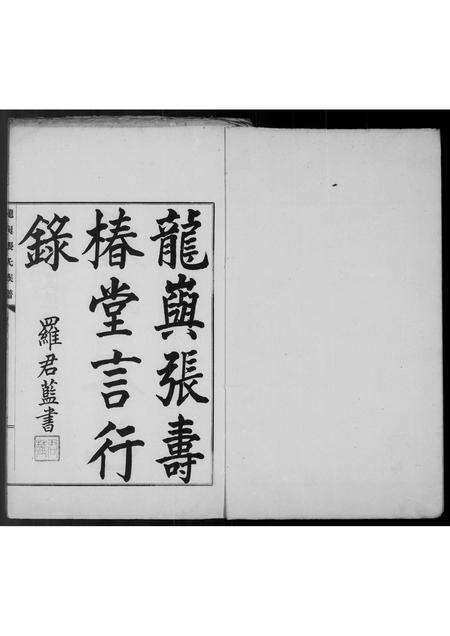 龍與張壽
椿堂言行
錄
羅君藍書